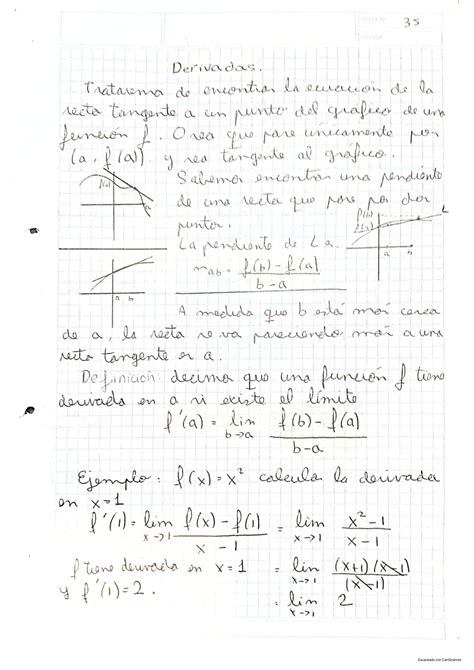 35
Derivadas.
Tratarema de encontrar la ecuación de la
recta tangente a un punto del gráfico de una
función f. O sea que pase unicamente por
(a, f(a)) y sea tangente al gráfico.
Sabemos encontrar una pendiente
de una recta que pase por dos
puntos.
La pendiente de L es.
f(a)
a
f(b)
f(a)
L
a b
m_ab = f(b) - f(a) / b - a
a b
A medida que b está más cerca
de a, la recta se va pareciendo más a una
recta tangente en a.
Definición: decimos que una función f tiene
derivada en a si existe el límite
f'(a) = lim b→a f(b) - f(a) / b-a
Ejemplo: f(x) = x² calcular la derivada
en x=1
f'(1) = lim x→1 f(x) - f(1) / x - 1 = lim x→1 x² - 1 / x - 1
f tiene derivada en x = 1 = lim x→1 (x+1)(x-1) / (x-1)
y f'(1) = 2. = lim x→1 2
Escaneado con CamScanner